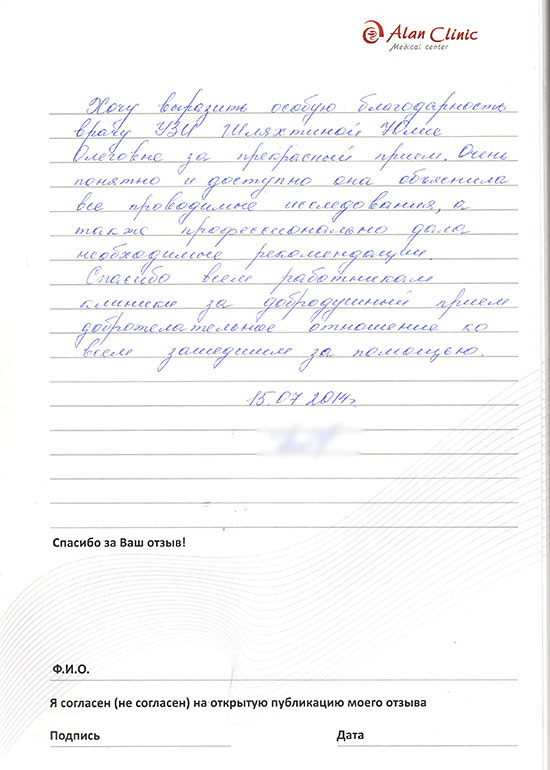 Alan Clinic
Medical center
Хочу выразить особую благодарность
врачу УЗИ Шляхтиной Юлие
Олеговне за прекрасный прием. Очень
понятно и доступно она объяснила
все проводимые исследования, а
также профессионально дала
необходимые рекомендации.
Спасибо всем работникам
клиники за добродушный прием
доброжелательное отношение ко
всем зашедшим за помощью.
15.07.2014г.
Спасибо за Ваш отзыв!
Ф.И.О.
Я согласен (не согласен) на открытую публикацию моего отзыва
Подпись Дата